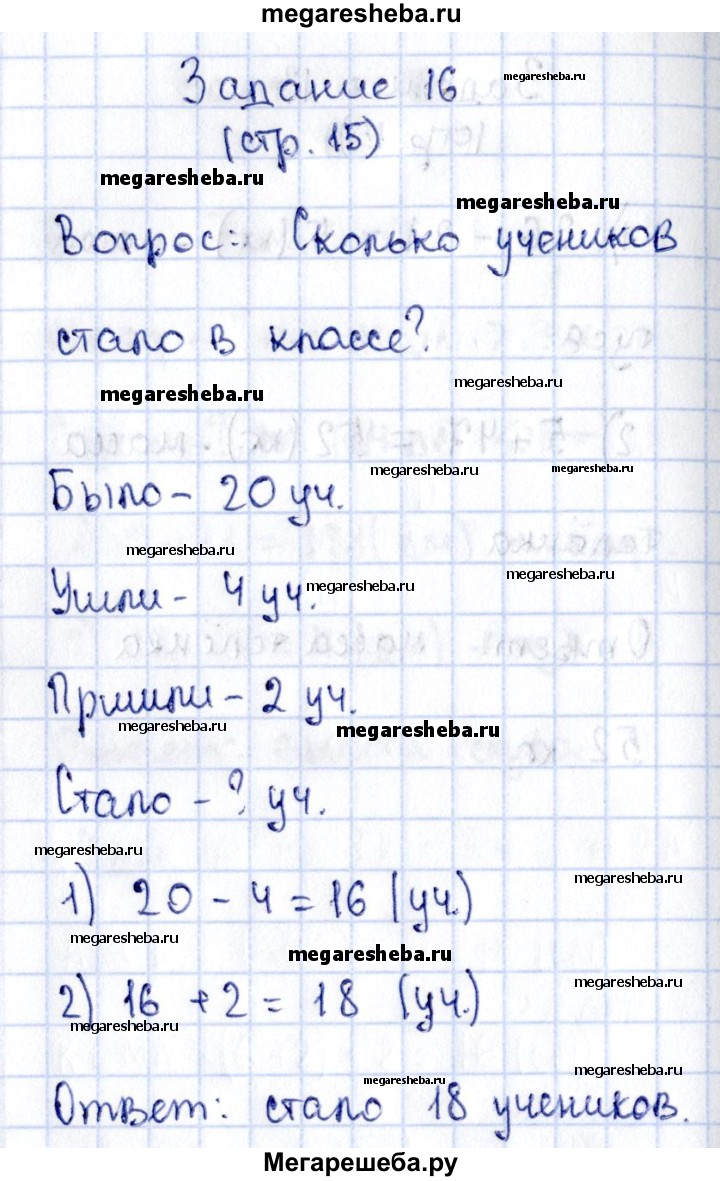 megaresheba.ru
Задание 16
megaresheba.ru
(стр. 15)
megaresheba.ru
megaresheba.ru
Вопрос: Сколько учеников
стало в классе?
megaresheba.ru
megaresheba.ru
megaresheba.ru
megaresheba.ru
Было - 20 уч.
megaresheba.ru
megaresheba.ru
Ушли - 4 уч.
megaresheba.ru
Пришли - 2 уч.
megaresheba.ru
megaresheba.ru
Стало - ? уч.
megaresheba.ru
megaresheba.ru
1) 20 - 4 = 16 (уч.)
megaresheba.ru
megaresheba.ru
megaresheba.ru
2) 16 + 2 = 18 (уч.)
megaresheba.ru
megaresheba.ru
megaresheba.ru
Ответ: стало 18 учеников.
Мегарешеба.ру